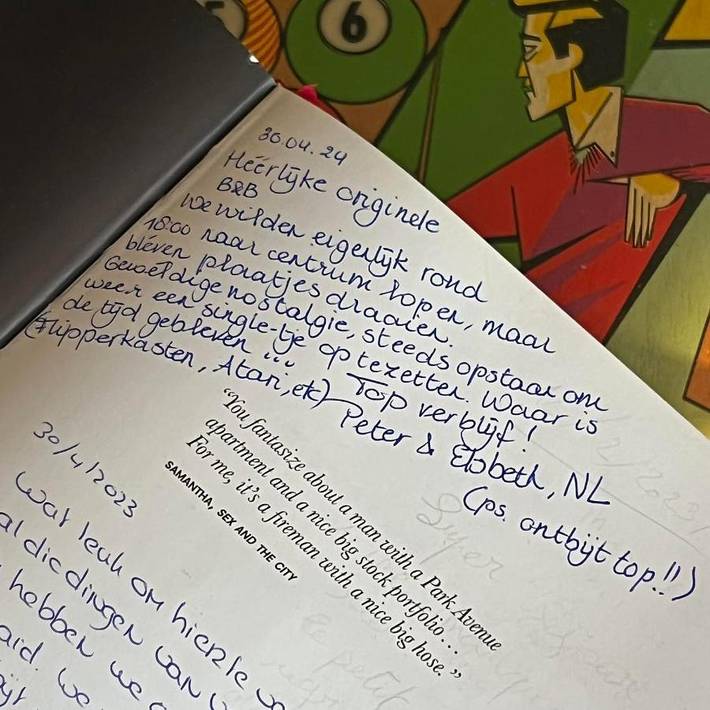 6
30.04.24
Heerlijke originele
B&B
We wilden eigenlijk rond
18:00 naar centrum lopen, maar
bleven plaatjes draaien.
Geweldige nostalgie, steeds opstaan om
weer een single-tje op te zetten. Waar is
de tijd gebleven ... Top verblijf!
(Flipperkasten, Atari, etc)
Peter & Elsbeth, NL
(ps. ontbijt top!!)
"You fantasize about a man with a Park Avenue
apartment and a nice big stock portfolio . . .
For me, it's a fireman with a nice big hose."
SAMANTHA, SEX AND THE CITY
30/4/2023
Wat leuk om hier
al die dingen van
hebben we
We